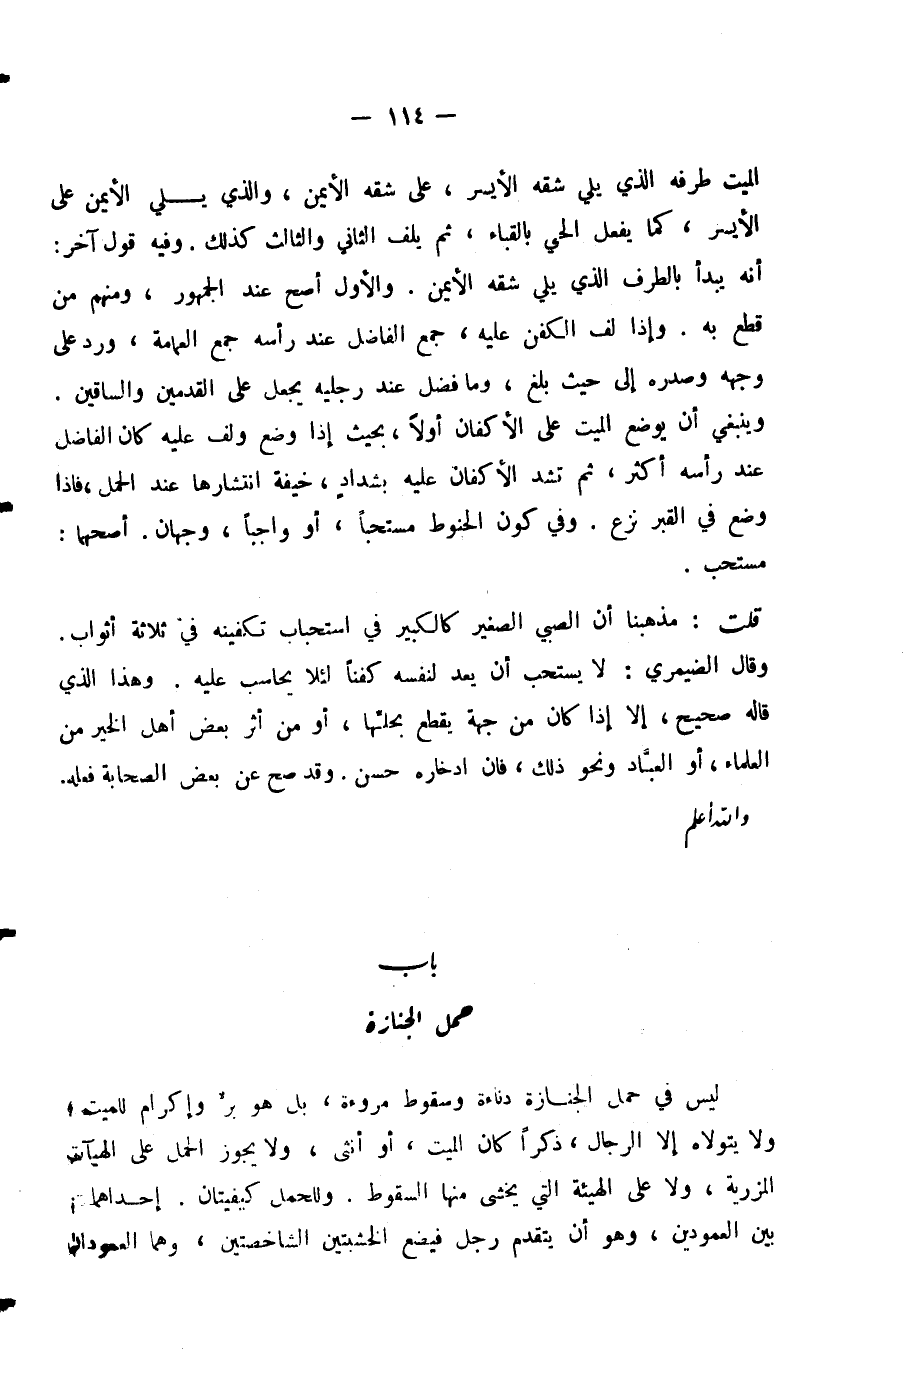 — ١١٤ —
الميت طرفه الذي يلي شقه الأيسر ، على شقه الأيمن ، والذي يــــلي الأيمن على
الأيسر ، كما يفعل الحي بالقباء ، ثم يلف الثاني والثالث كذلك . وفيه قول آخر :
أنه يبدأ بالطرف الذي يلي شقه الأيمن . والأول أصح عند الجمهور ، ومنهم من
قطع به . وإذا لف الكفن عليه ، جمع الفاضل عند رأسه جمع العمامة ، ورد على
وجهه وصدره إلى حيث بلغ ، وما فضل عند رجليه يجعل على القدمين والساقين .
وينبغي أن يوضع الميت على الأكفان أولاً ، بحيث إذا وضع ولف عليه كان الفاضل
عند رأسه أكثر ، ثم تشد الأكفان عليه بشدادٍ ، خيفة انتشارها عند الحمل ، فاذا
وضع في القبر نزع . وفي كون الحنوط مستحباً ، أو واجباً ، وجهان . أصحهما :
مستحب .
قلت : مذهبنا أن الصبي الصغير كالكبير في استحباب تكفينه في ثلاثة أثواب .
وقال الضيمري : لا يستحب أن يعد لنفسه كفناً لئلا يحاسب عليه . وهذا الذي
قاله صحيح ، إلا إذا كان من جهة يقطع بحلتّها ، أو من أثر بعض أهل الخير من
العلماء ، أو العبَّاد ونحو ذلك ، فان ادخاره حسن . وقد صح عن بعض الصحابة فعله .
والله أعلم
باب
حمل الجنازة
ليس في حمل الجنــازة دناءة وسقوط مروءة ، بل هو برٌ وإكرام للميت ،
ولا يتولاه إلا الرجال ، ذكراً كان الميت ، أو أنثى ، ولا يجوز الحمل على الهيآت
المزرية ، ولا على الهيئة التي يخشى منها السقوط . وللحمل كيفيتان . إحــداهما :
بين العمودين ، وهو أن يتقدم رجل فيضع الخشبتين الشاخصتين ، وهما العمودان